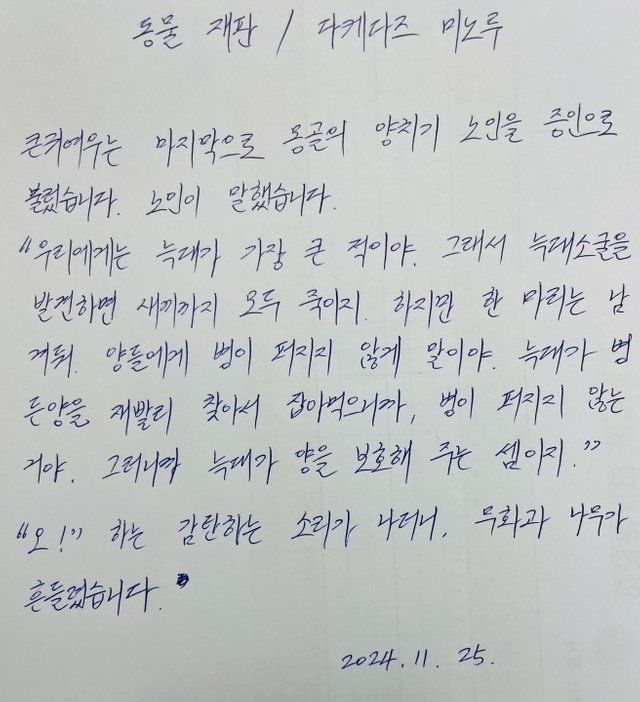 동물 재판 / 다케다즈 미노루
큰귀여우는 마지막으로 몽골의 양치기 노인을 증인으로
불렀습니다. 노인이 말했습니다.
“우리에게는 늑대가 가장 큰 적이야. 그래서 늑대소굴을
발견하면 새끼까지 모두 죽이지. 하지만 한 마리는 남
겨둬. 양들에게 병이 퍼지지 않게 말이야. 늑대가 병
든양을 재빨리 찾아서 잡아먹으니까, 병이 퍼지지 않는
거야. 그러니까 늑대가 양을 보호해 주는 셈이지.”
“오!” 하는 감탄하는 소리가 나더니, 무화과 나무가
흔들렸습니다.
2024. 11. 25.